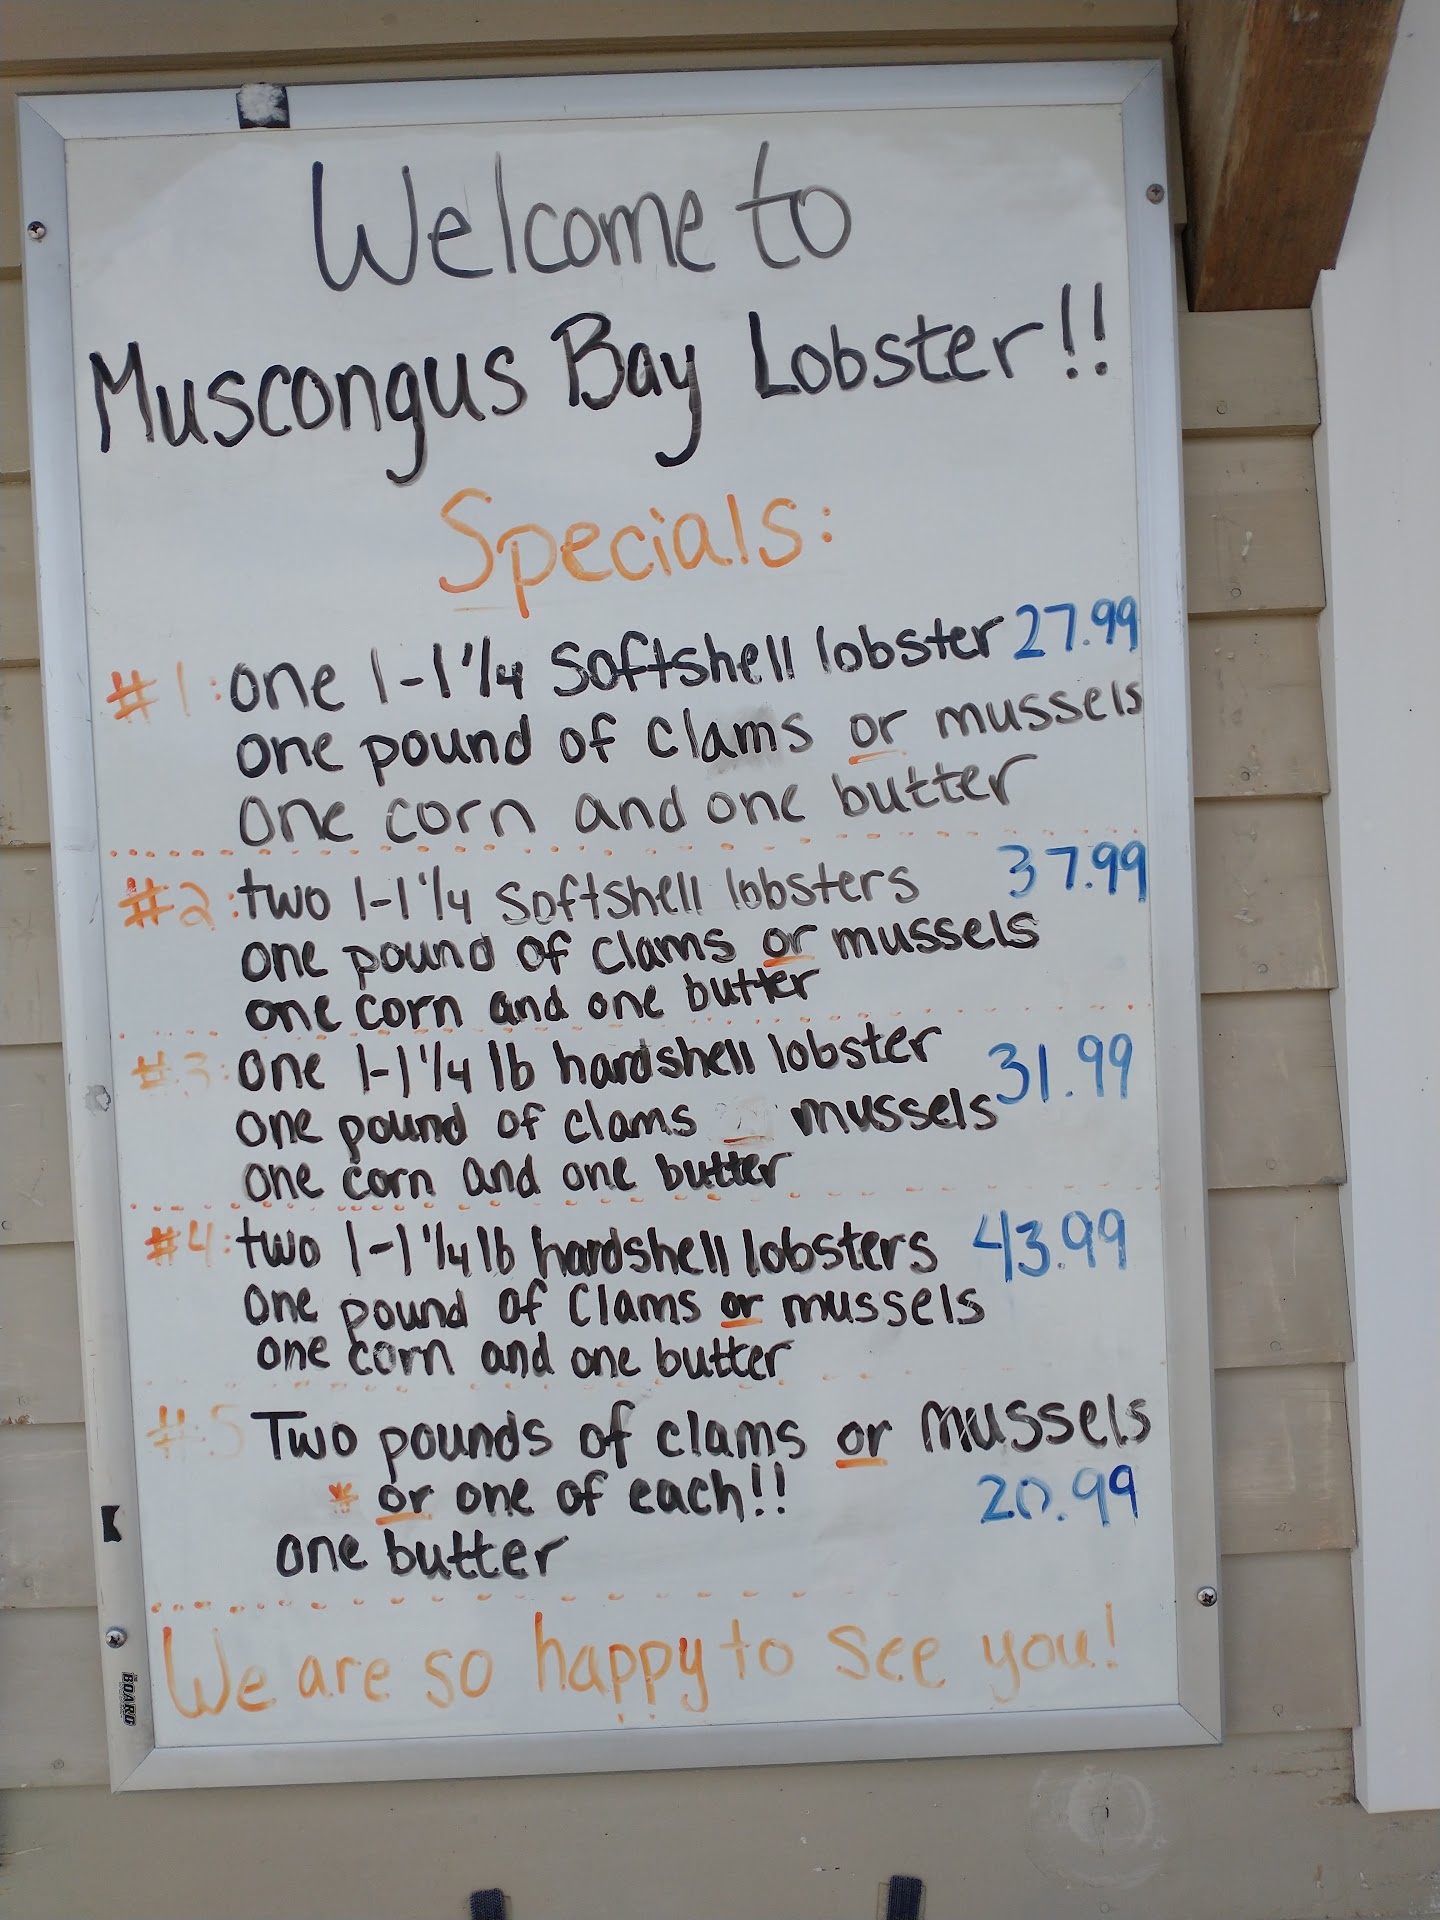 Welcome to
Muscongus Bay Lobster!!
Specials:
#1: one 1-1 1/4 Softshell lobster 27.99
one pound of clams or mussels
one corn and one butter
#2: two 1-1 1/4 softshell lobsters 37.99
one pound of clams or mussels
one corn and one butter
#3: one 1-1 1/4 lb hardshell lobster 31.99
one pound of clams mussels
one corn and one butter
#4: two 1-1 1/4 lb hardshell lobsters 43.99
one pound of clams or mussels
one corn and one butter
#5 Two pounds of clams or mussels
* or one of each!! 20.99
one butter
We are so happy to see you!
BOARD